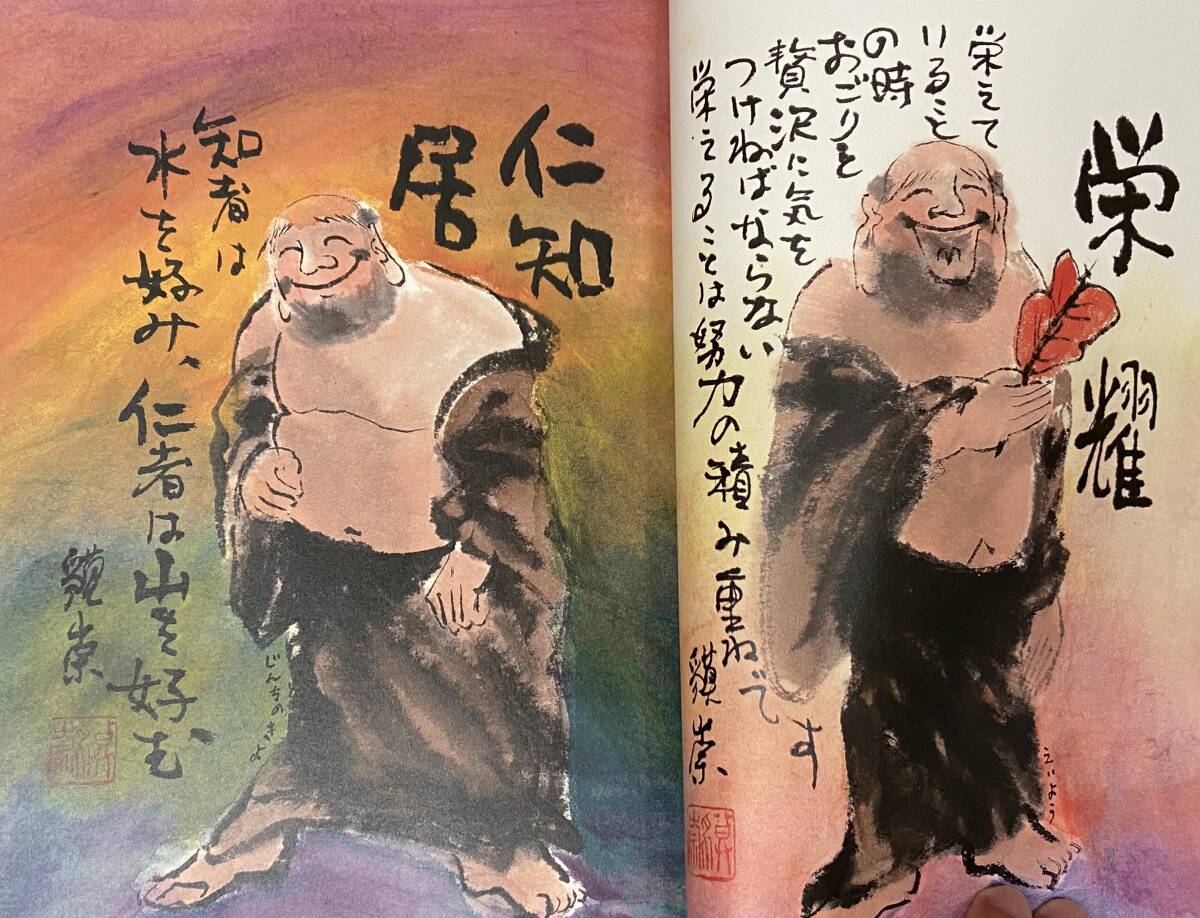 栄耀
栄えて
いること
の時
おごりと
贅沢に気を
つけねばならない
栄えることは努力の積み重ねです
えいよう
仁知
居
知者は
水を好み、仁者は山を好む
じんちのきよ